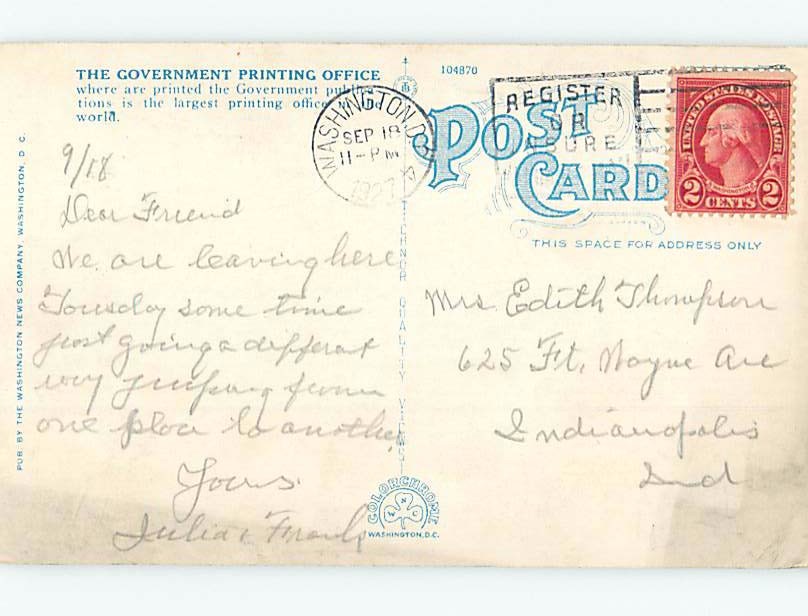 THE GOVERNMENT PRINTING OFFICE
where are printed the Government publica-
tions is the largest printing office in the
world.
9/18
Dear Friend
We are leaving here
Tousday some time
just going a different
way jumping from
one place to another
Yours
Julia & Frank
PUB. BY THE WASHINGTON NEWS COMPANY, WASHINGTON, D. C.
TICHNOR QUALITY VIEWS
COLORCHROME
W N C
WASHINGTON, D.C.
104870
WASHINGTON, D.C.
SEP 18
11-PM
1927
REGISTER
OR
INSURE
POST
CARD
UNITED STATES POSTAGE
WASHINGTON
2 CENTS 2
THIS SPACE FOR ADDRESS ONLY
Mrs Edith Thompson
625 Ft. Wayne Ave
Indianapolis
Ind